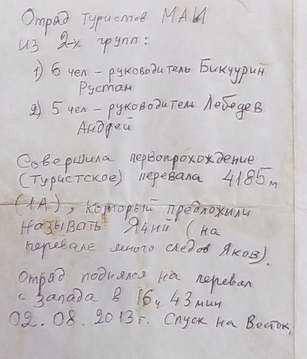 Отряд туристов МАИ
из 2-х групп:
1) 6 чел - руководитель Бикчурин
Рустам
2) 5 чел - руководитель Лебедев
Андрей
Совершила первопрохождение
(туристское) перевала 4185м
(1А), который предложили
называть Яний (на
перевале много следов Яков).
Отряд поднялся на перевал
с запада в 16ч 43мин
02.08.2013г. Спуск на Восток.